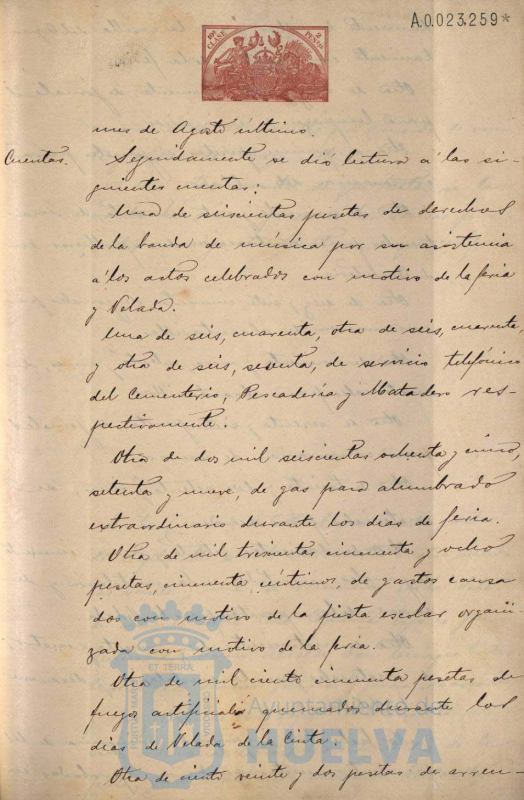 A.0.023.259*
10ª CLASE 2 PESETAS
mes de Agosto último.
Cuentas. Seguidamente se dió lectura á las si-
guientes cuentas:
Una de seiscientas pesetas de derechos
de la banda de música por su asistencia
á los actos celebrados con motivo de la feria
y Velada.
Una de seis, cuarenta, otra de seis, cuarenta,
y otra de seis, sesenta, de servicio telefónico
del Cementerio, Pescadería y Matadero res-
pectivamente.
Otra de dos mil seiscientas ochenta y cinco,
setenta y nueve, de gas para alumbrado
extraordinario durante los dias de feria.
Otra de mil trescientas cincuenta y ocho
pesetas, cincuenta céntimos, de gastos causa
dos con motivo de la fiesta escolar organi-
zada con motivo de la feria.
Otra de mil ciento cincuenta pesetas de
fuegos artificiales quemados durante los
dias de Velada de la Cinta.
Otra de ciento veinte y dos pesetas de arren-
ET TERRÆ
Ayuntamiento de
HUELVA